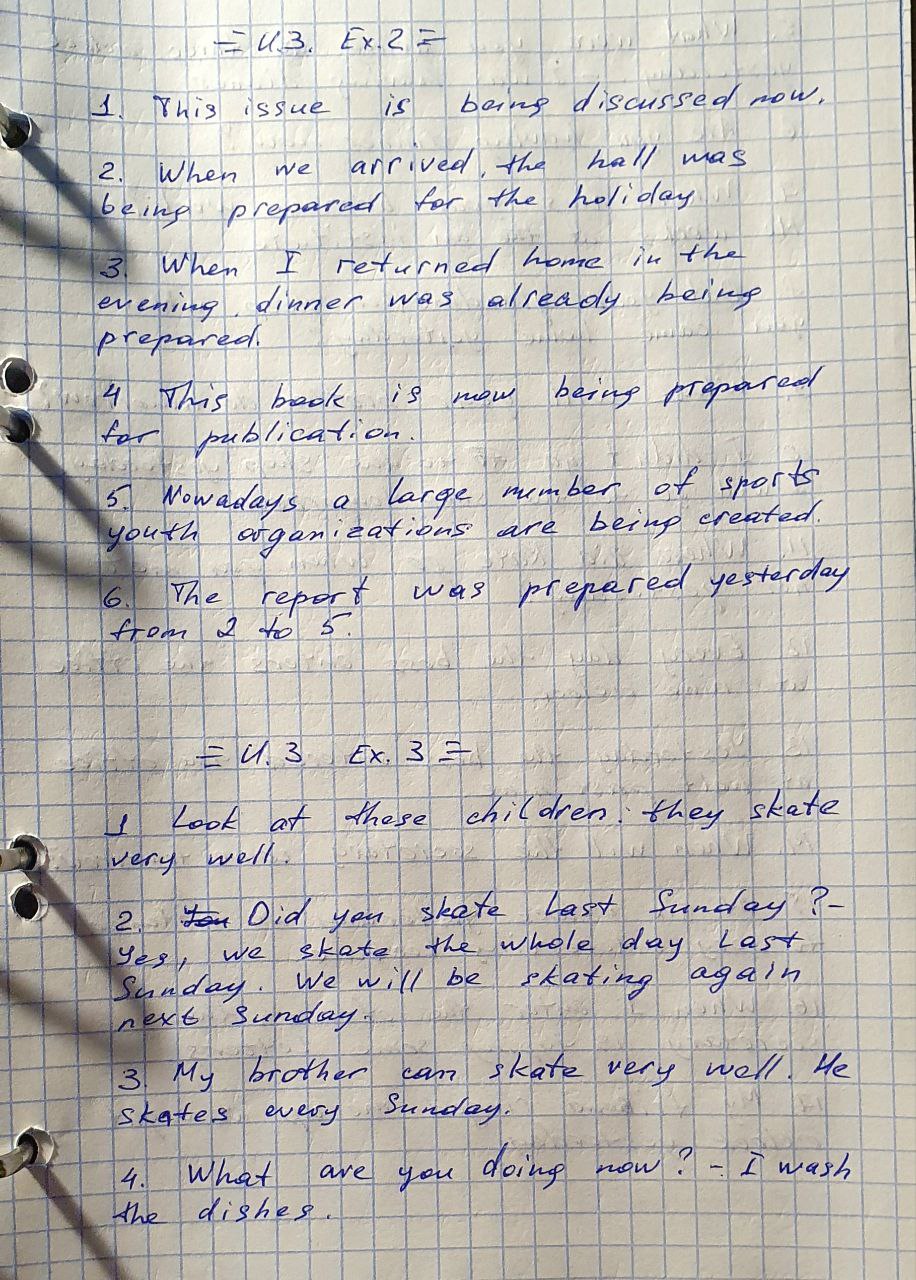 = U.3. Ex.2 =
1. This issue is being discussed now.
2. When we arrived, the hall was
being prepared for the holiday
3. When I returned home in the
evening, dinner was already being
prepared.
4 This book is now being prepared
for publication.
5. Nowadays a large number of sports
youth organizations are being created.
6. The report was prepared yesterday
from 2 to 5.
= U.3 Ex. 3 =
1 Look at these children: they skate
very well.
2. You Did you skate last Sunday? -
Yes, we skate the whole day last
Sunday. We will be skating again
next Sunday.
3. My brother can skate very well. He
skates every Sunday.
4. What are you doing now? - I wash
the dishes.